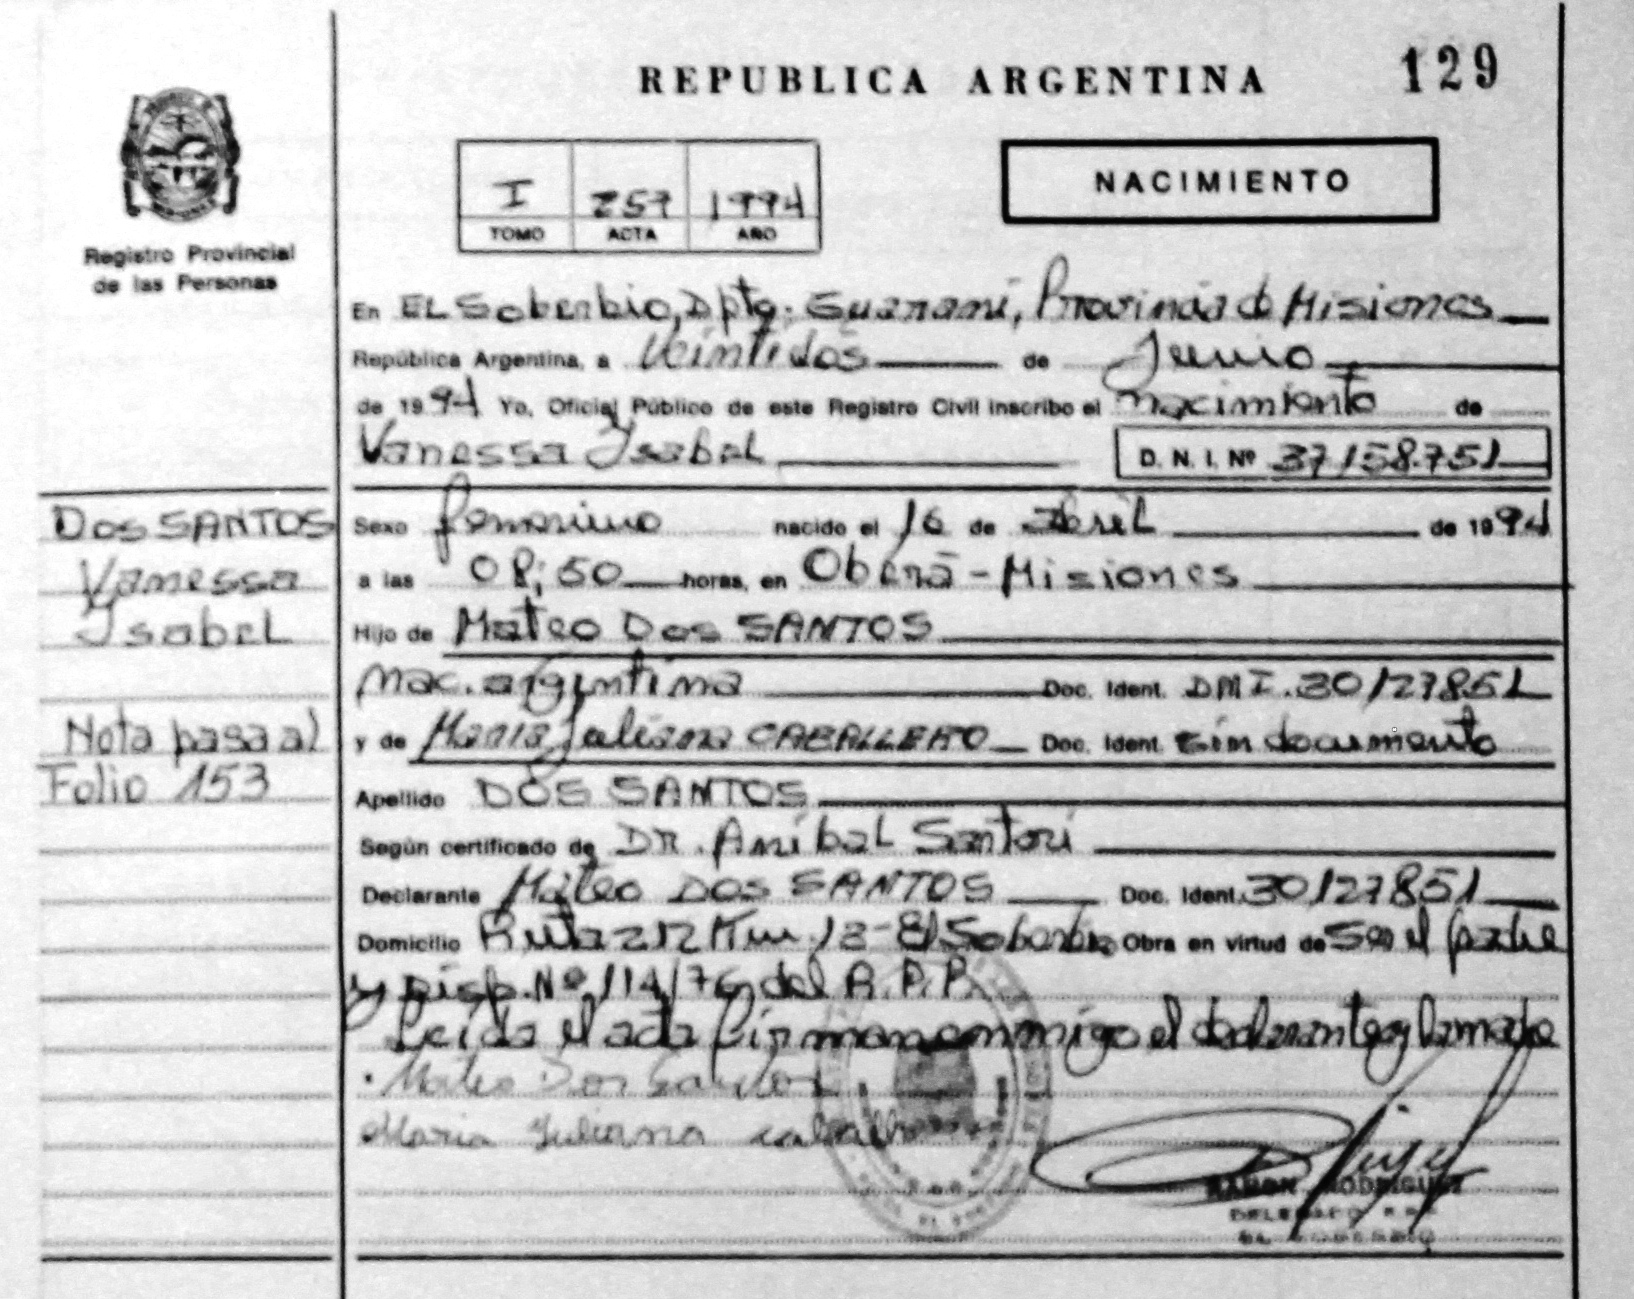 REPUBLICA ARGENTINA
129
Registro Provincial
de las Personas
I 259 1994
TOMO ACTA AÑO
NACIMIENTO
En EL Soberbio, Dpto. Guaraní, Provincia de Misiones
República Argentina, a Veintidós de Junio
de 1994 Yo, Oficial Público de este Registro Civil inscribo el nacimiento de
Vanessa Ysabel D. N. I. Nº 37158.751
Dos SANTOS
Vanessa
Ysabel
Nota pasa al
Folio 153
Sexo femenino nacido el 16 de Abril de 1994
a las 08:50 horas, en Oberá - Misiones
Hijo de Mateo Dos SANTOS
nac. argentina Doc. Ident. DNI. 30127851
y de María Juliana CABALLERO Doc. Ident. sin documento
Apellido DOS SANTOS
Según certificado de DR. Aníbal Santori
Declarante Mateo DOS SANTOS Doc. Ident. 30127851
Domicilio Ruta 212 Km 13 - El Soberbio Obra en virtud de Ser el padre
y Disp. Nº 114/76 del R.P.P.
Leída el acta firman conmigo el declarante y la madre
Mateo Dos Santos
Maria Juliana caballero
RAMON RODRIGUEZ
DELEGADO R.P.P.
EL SOBERBIO